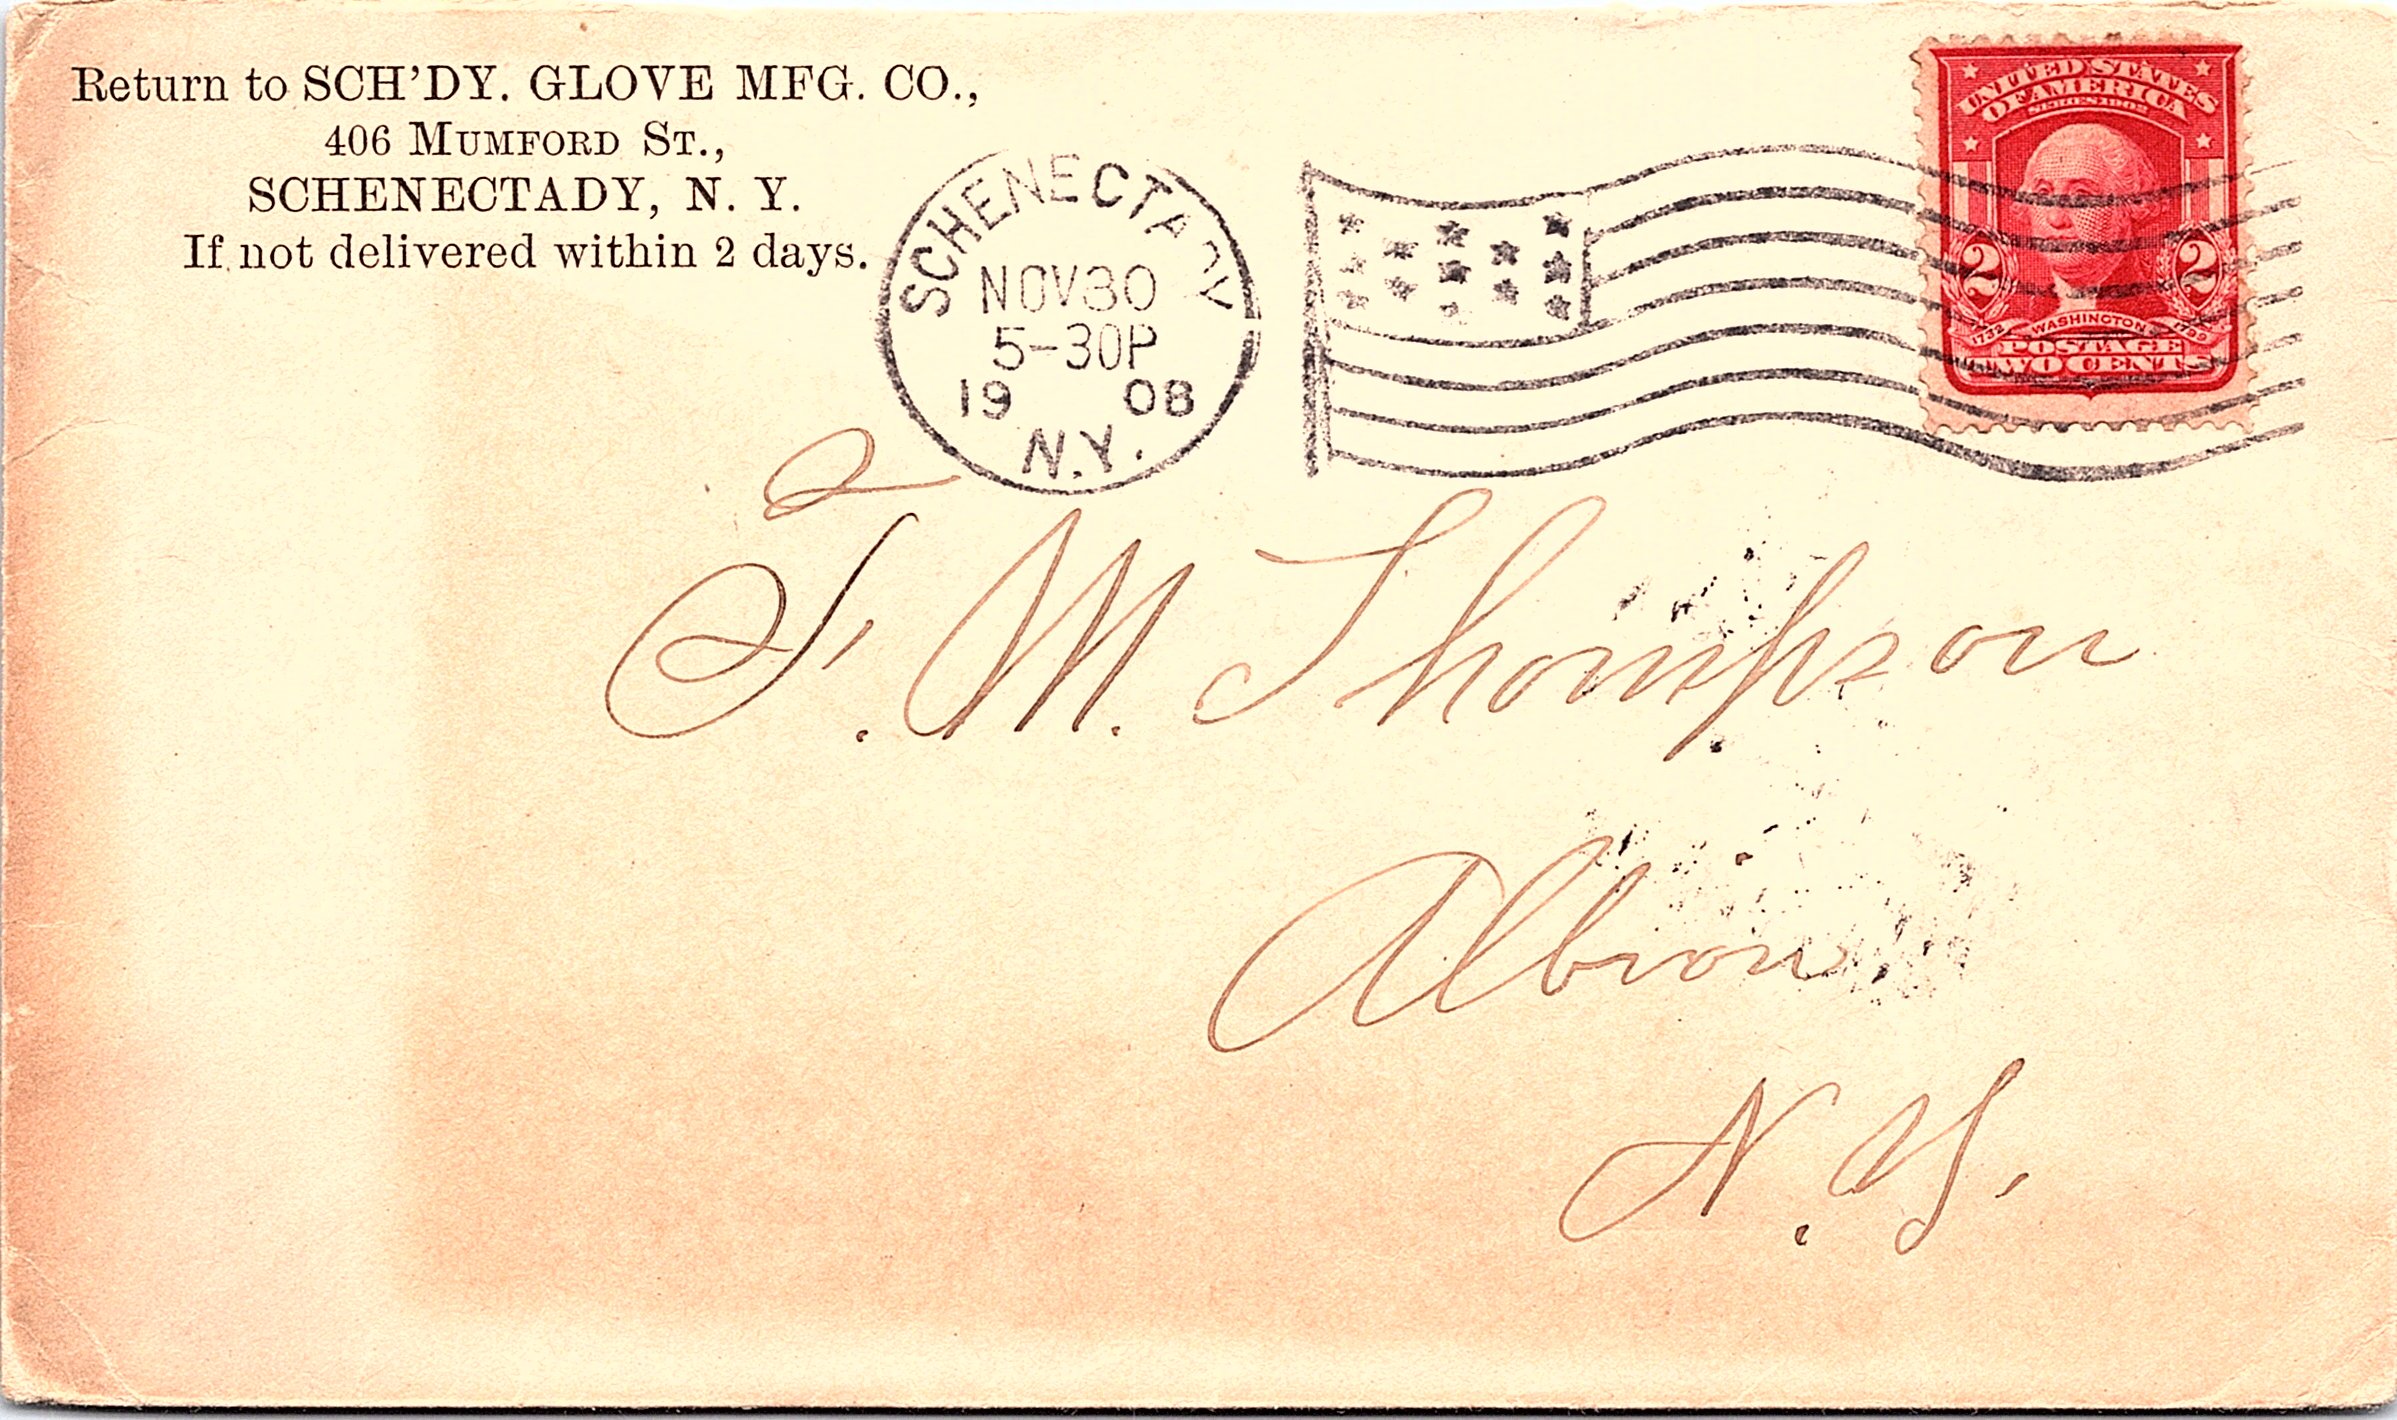 Return to SCH'DY. GLOVE MFG. CO.,
406 MUMFORD ST.,
SCHENECTADY, N. Y.
If not delivered within 2 days.
SCHENECTADY
NOV 30
5-30P
19 08
N.Y.
UNITED STATES
OF AMERICA
2 2
1732 WASHINGTON 1799
POSTAGE
TWO CENTS
F. M. Thompson
Albion
N. Y.